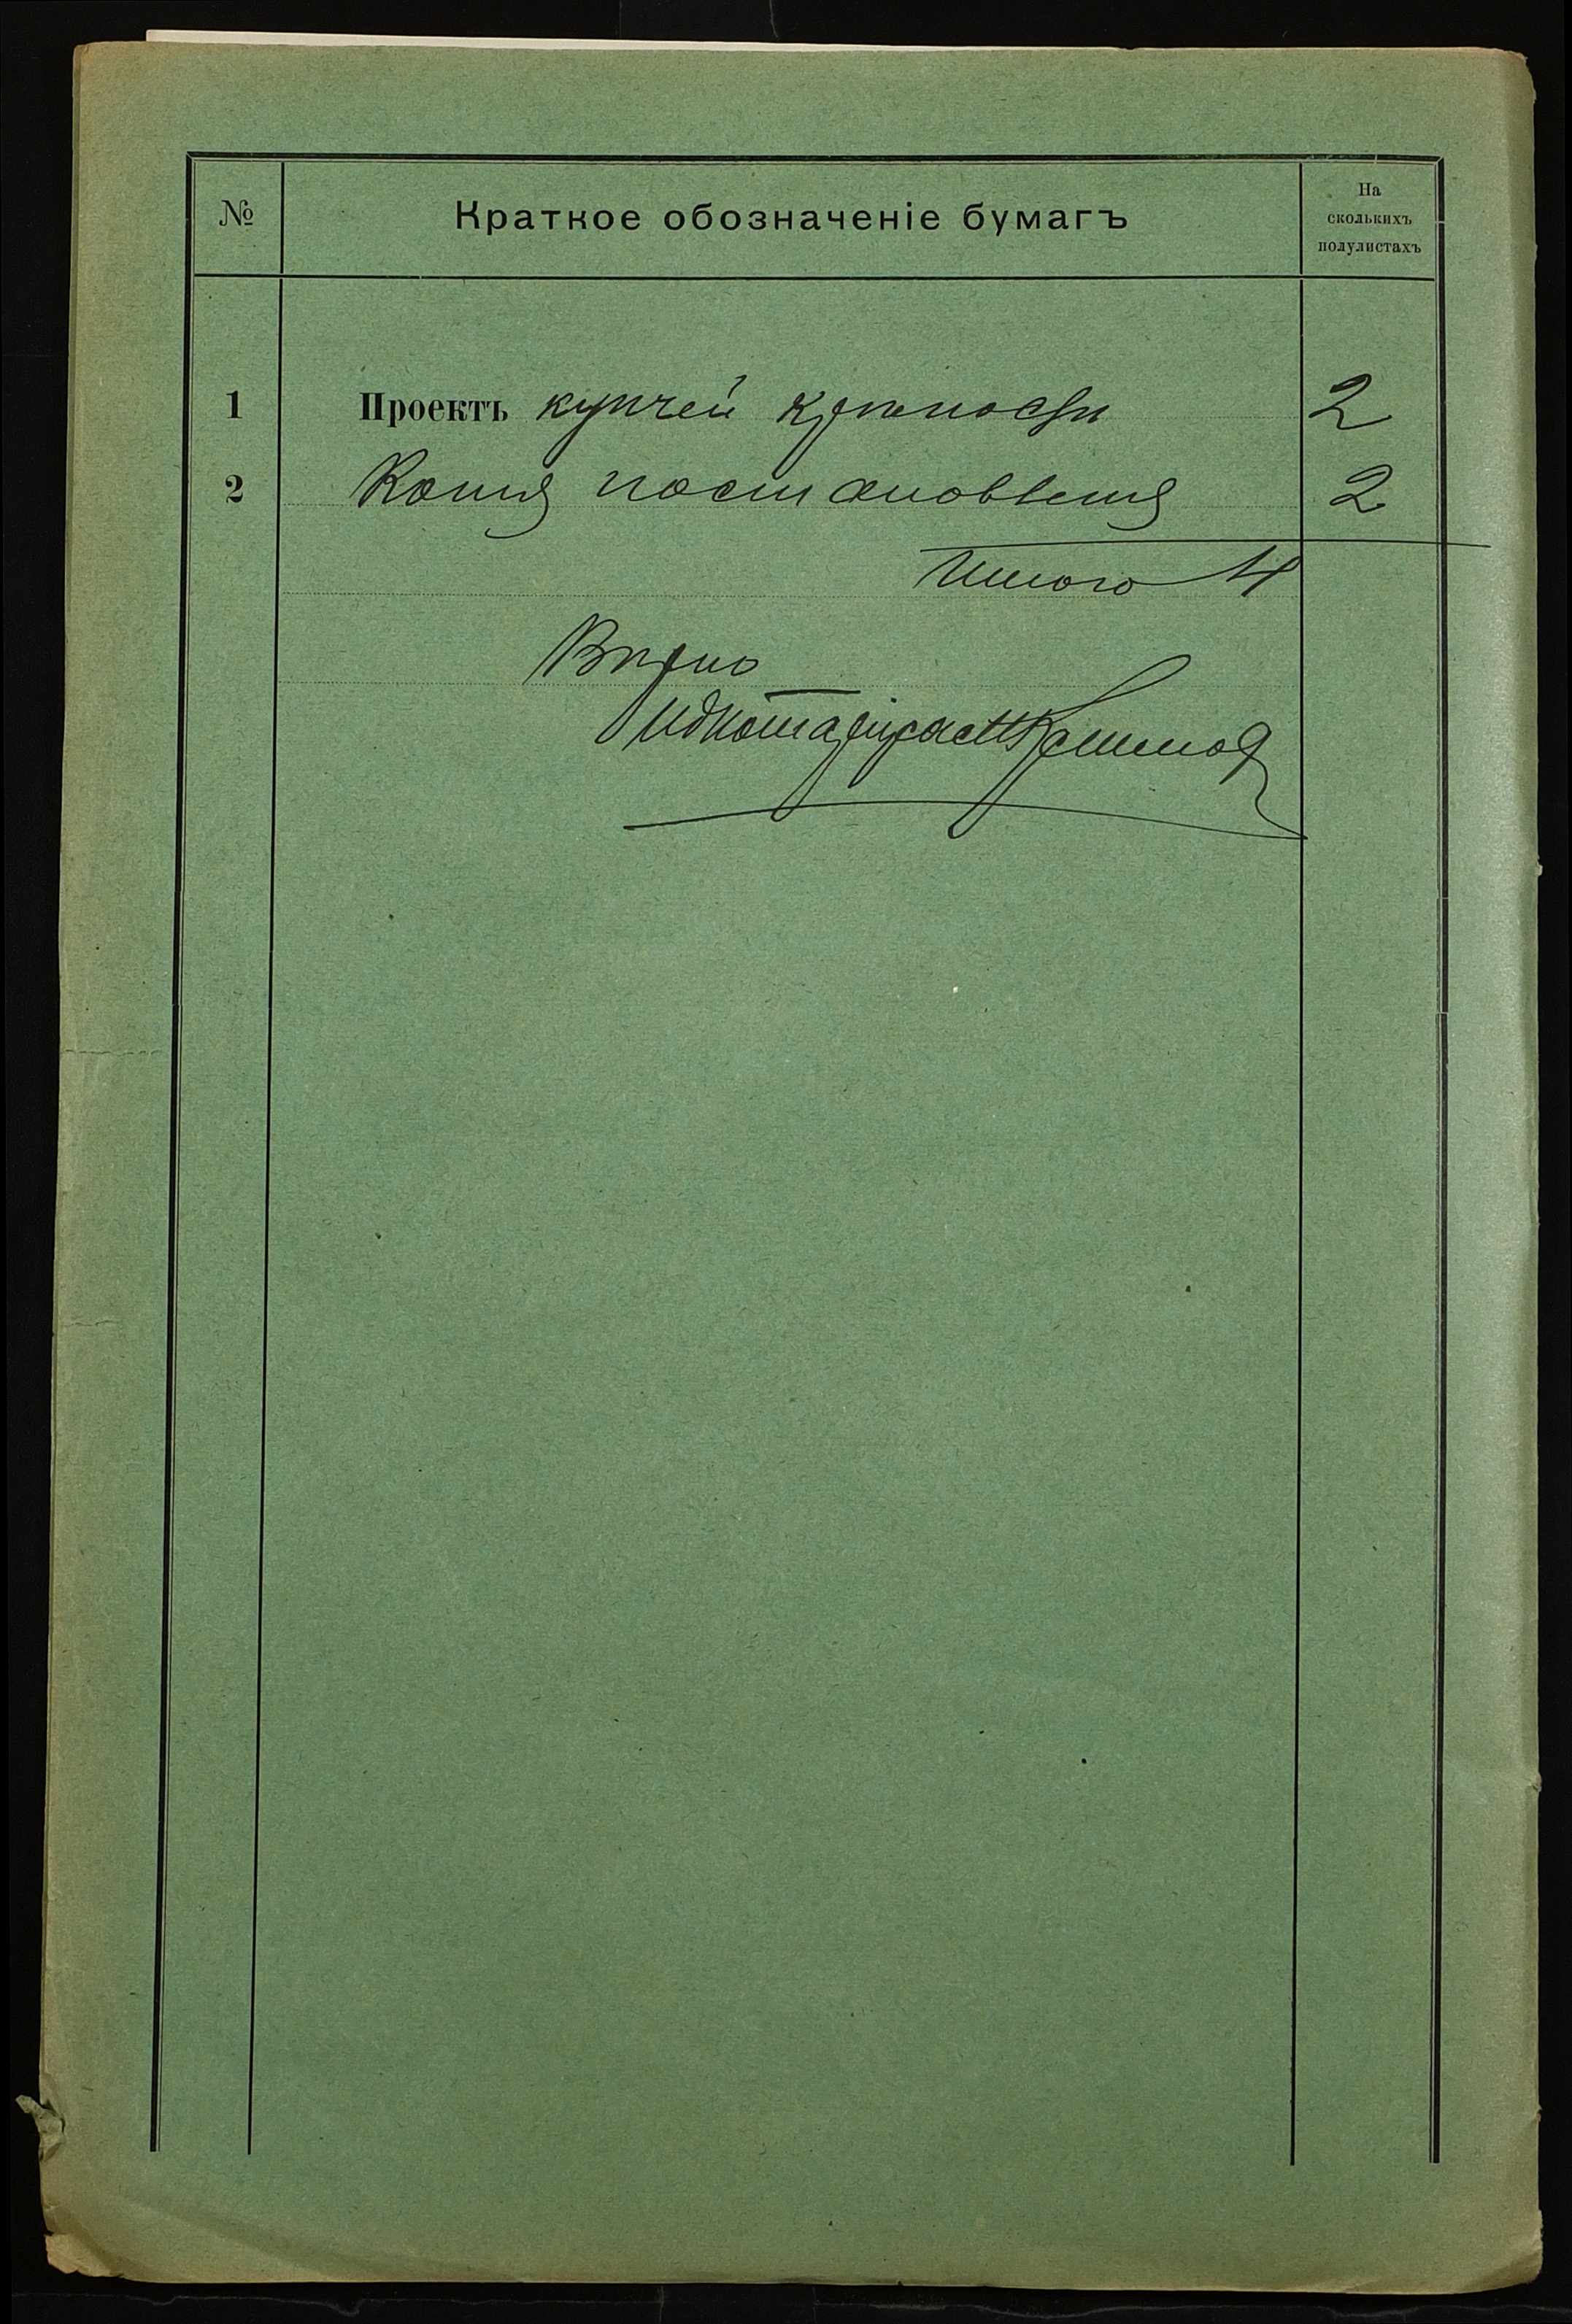 № Краткое обозначеніе бумагъ На
сколькихъ
полулистахъ
1 Проектъ купчей крѣпости 2
2 Копія постановленія 2
Итого 4
Вѣрно